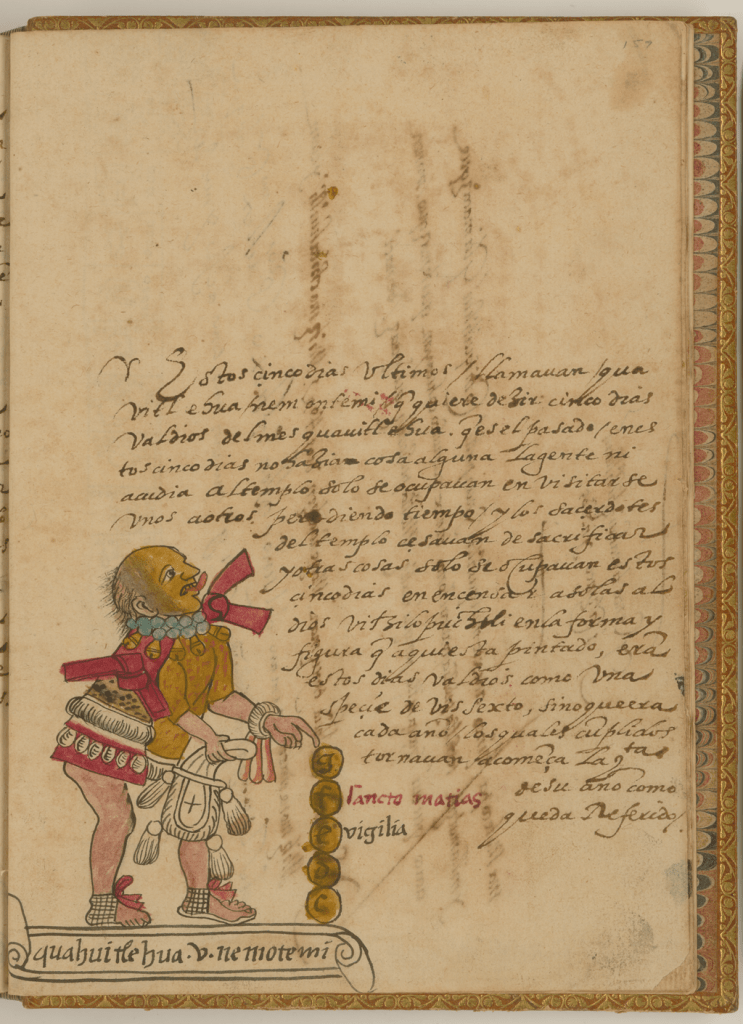 157
V Estos cinco dias Ultimos / llamavan / qua
vitl e hua / nem ontemi / q̃ quiere dezir cinco dias
Valdios del mes quavitl e hua. q̃ es el pasado / en es
tos cinco dias no hazia cosa alguna La gente ni
acudia al templo solo se ocupavan en visitarse
Unos a otros perdiendo tiempo / y los sacerdotes
del templo cesavan de sacrificar
y otras cosas solo se ocupavan estos
cinco dias en encensar a solas al
dios vitzilopuchtli en la forma y
figura q̃ aqui esta pintado, erã
estos dias valdios, como Una
specie de vissexto, sino que era
cada año / los quales cũplidos
tornavan a comẽça La qta
de su año como
queda Referido /.
g
f
e
D
c
sancto matias
vigilia
quahuitlehua · v · nemotemi